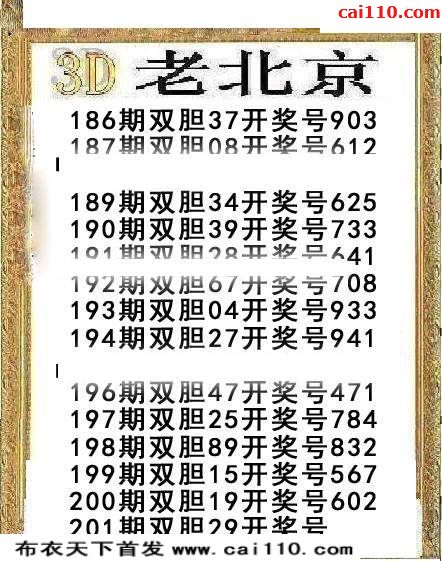 cai110.com
3D 老北京
186期双胆37开奖号903
187期双胆08开奖号612
189期双胆34开奖号625
190期双胆39开奖号733
191期双胆28开奖号641
192期双胆67开奖号708
193期双胆04开奖号933
194期双胆27开奖号941
196期双胆47开奖号471
197期双胆25开奖号784
198期双胆89开奖号832
199期双胆15开奖号567
200期双胆19开奖号602
201期双胆29开奖号
布衣天下首发 www.cai110.com